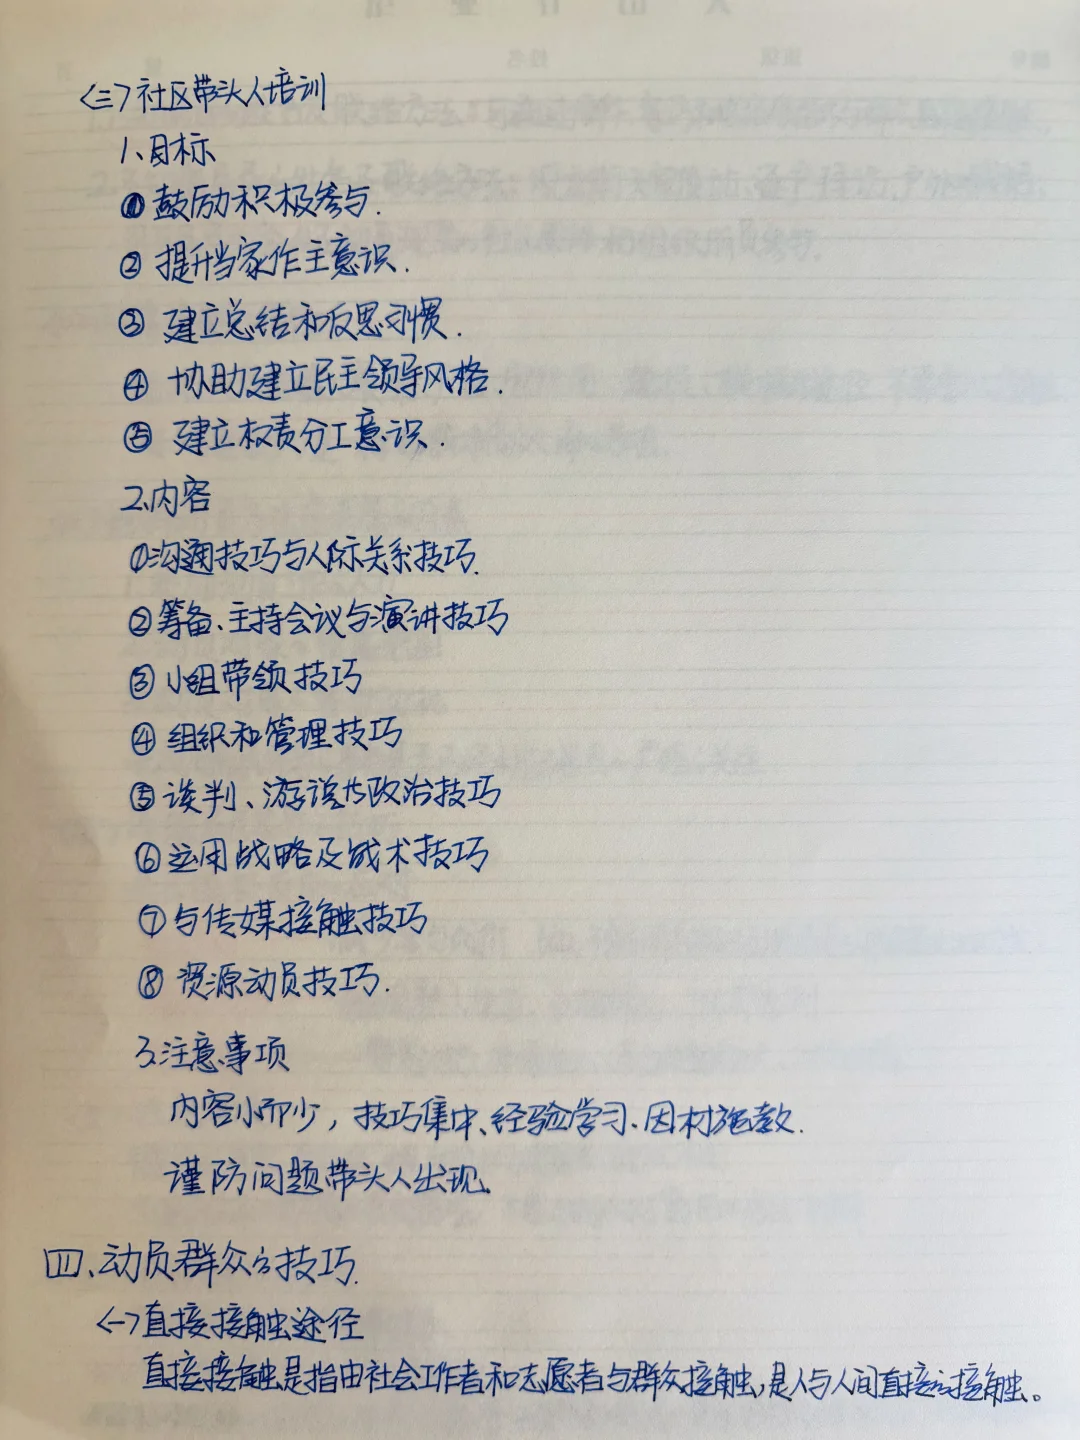 <三>社区带头人培训
1、目标
① 鼓励积极参与.
② 提升当家作主意识.
③ 建立总结和反思习惯.
④ 协助建立民主领导风格.
⑤ 建立权责分工意识.
2、内容
①沟通技巧与人际关系技巧.
②筹备、主持会议与演讲技巧
③ 小组带领技巧
④ 组织和管理技巧
⑤ 谈判、游说与政治技巧
⑥运用战略及战术技巧
⑦与传媒接触技巧
⑧ 资源动员技巧.
3、注意事项
内容小而少，技巧集中、经验学习、因材施教.
谨防问题带头人出现.
四、动员群众的技巧.
<一>直接接触途径
直接接触是指由社会工作者和志愿者与群众接触,是人与人间直接的接触。